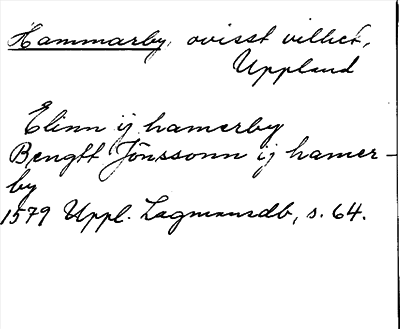 Hammarby, ovisst vilket,
Uppland
Elinn ij hamerby
Bengtt Jönssonn ij hamer-
by
1579 Uppl. Lagmansdb, s. 64.